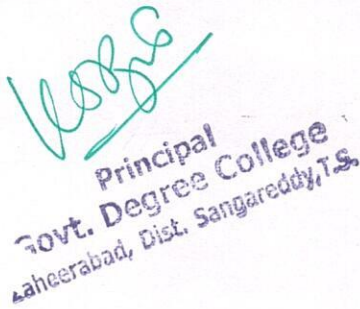 Principal
Govt. Degree College
Zaheerabad, Dist. Sangareddy,T.S.